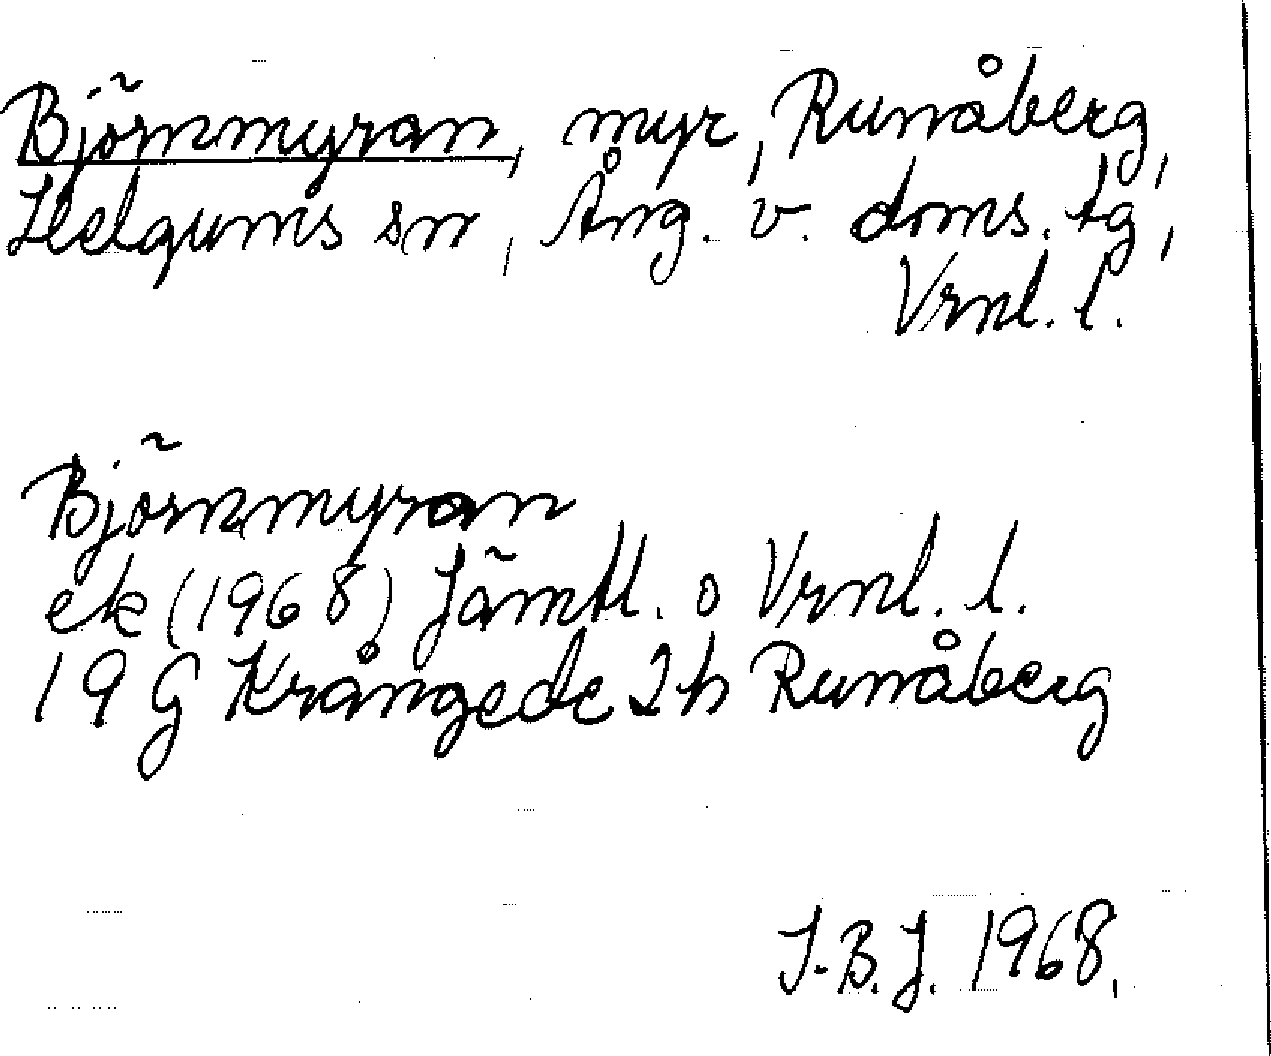 Björnmyran, myr, Runåberg,
Helgums sn, Ång. v. doms. tg,
Vrnl. l.
Björnmyran
ek (1968) Jämtl. o Vrnl. l.
19 G Krångede 2h Runåberg
I.B.J. 1968.